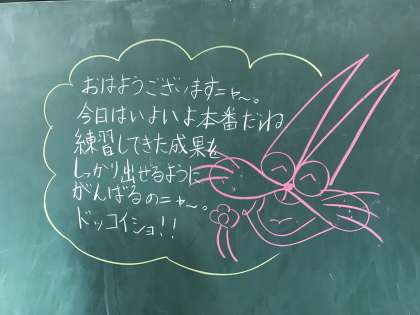 おはようございますニャ〜。
今日はいよいよ本番だね
練習してきた成果を
しっかり出せるように
がんばるのニャ〜。
ドッコイショ!!